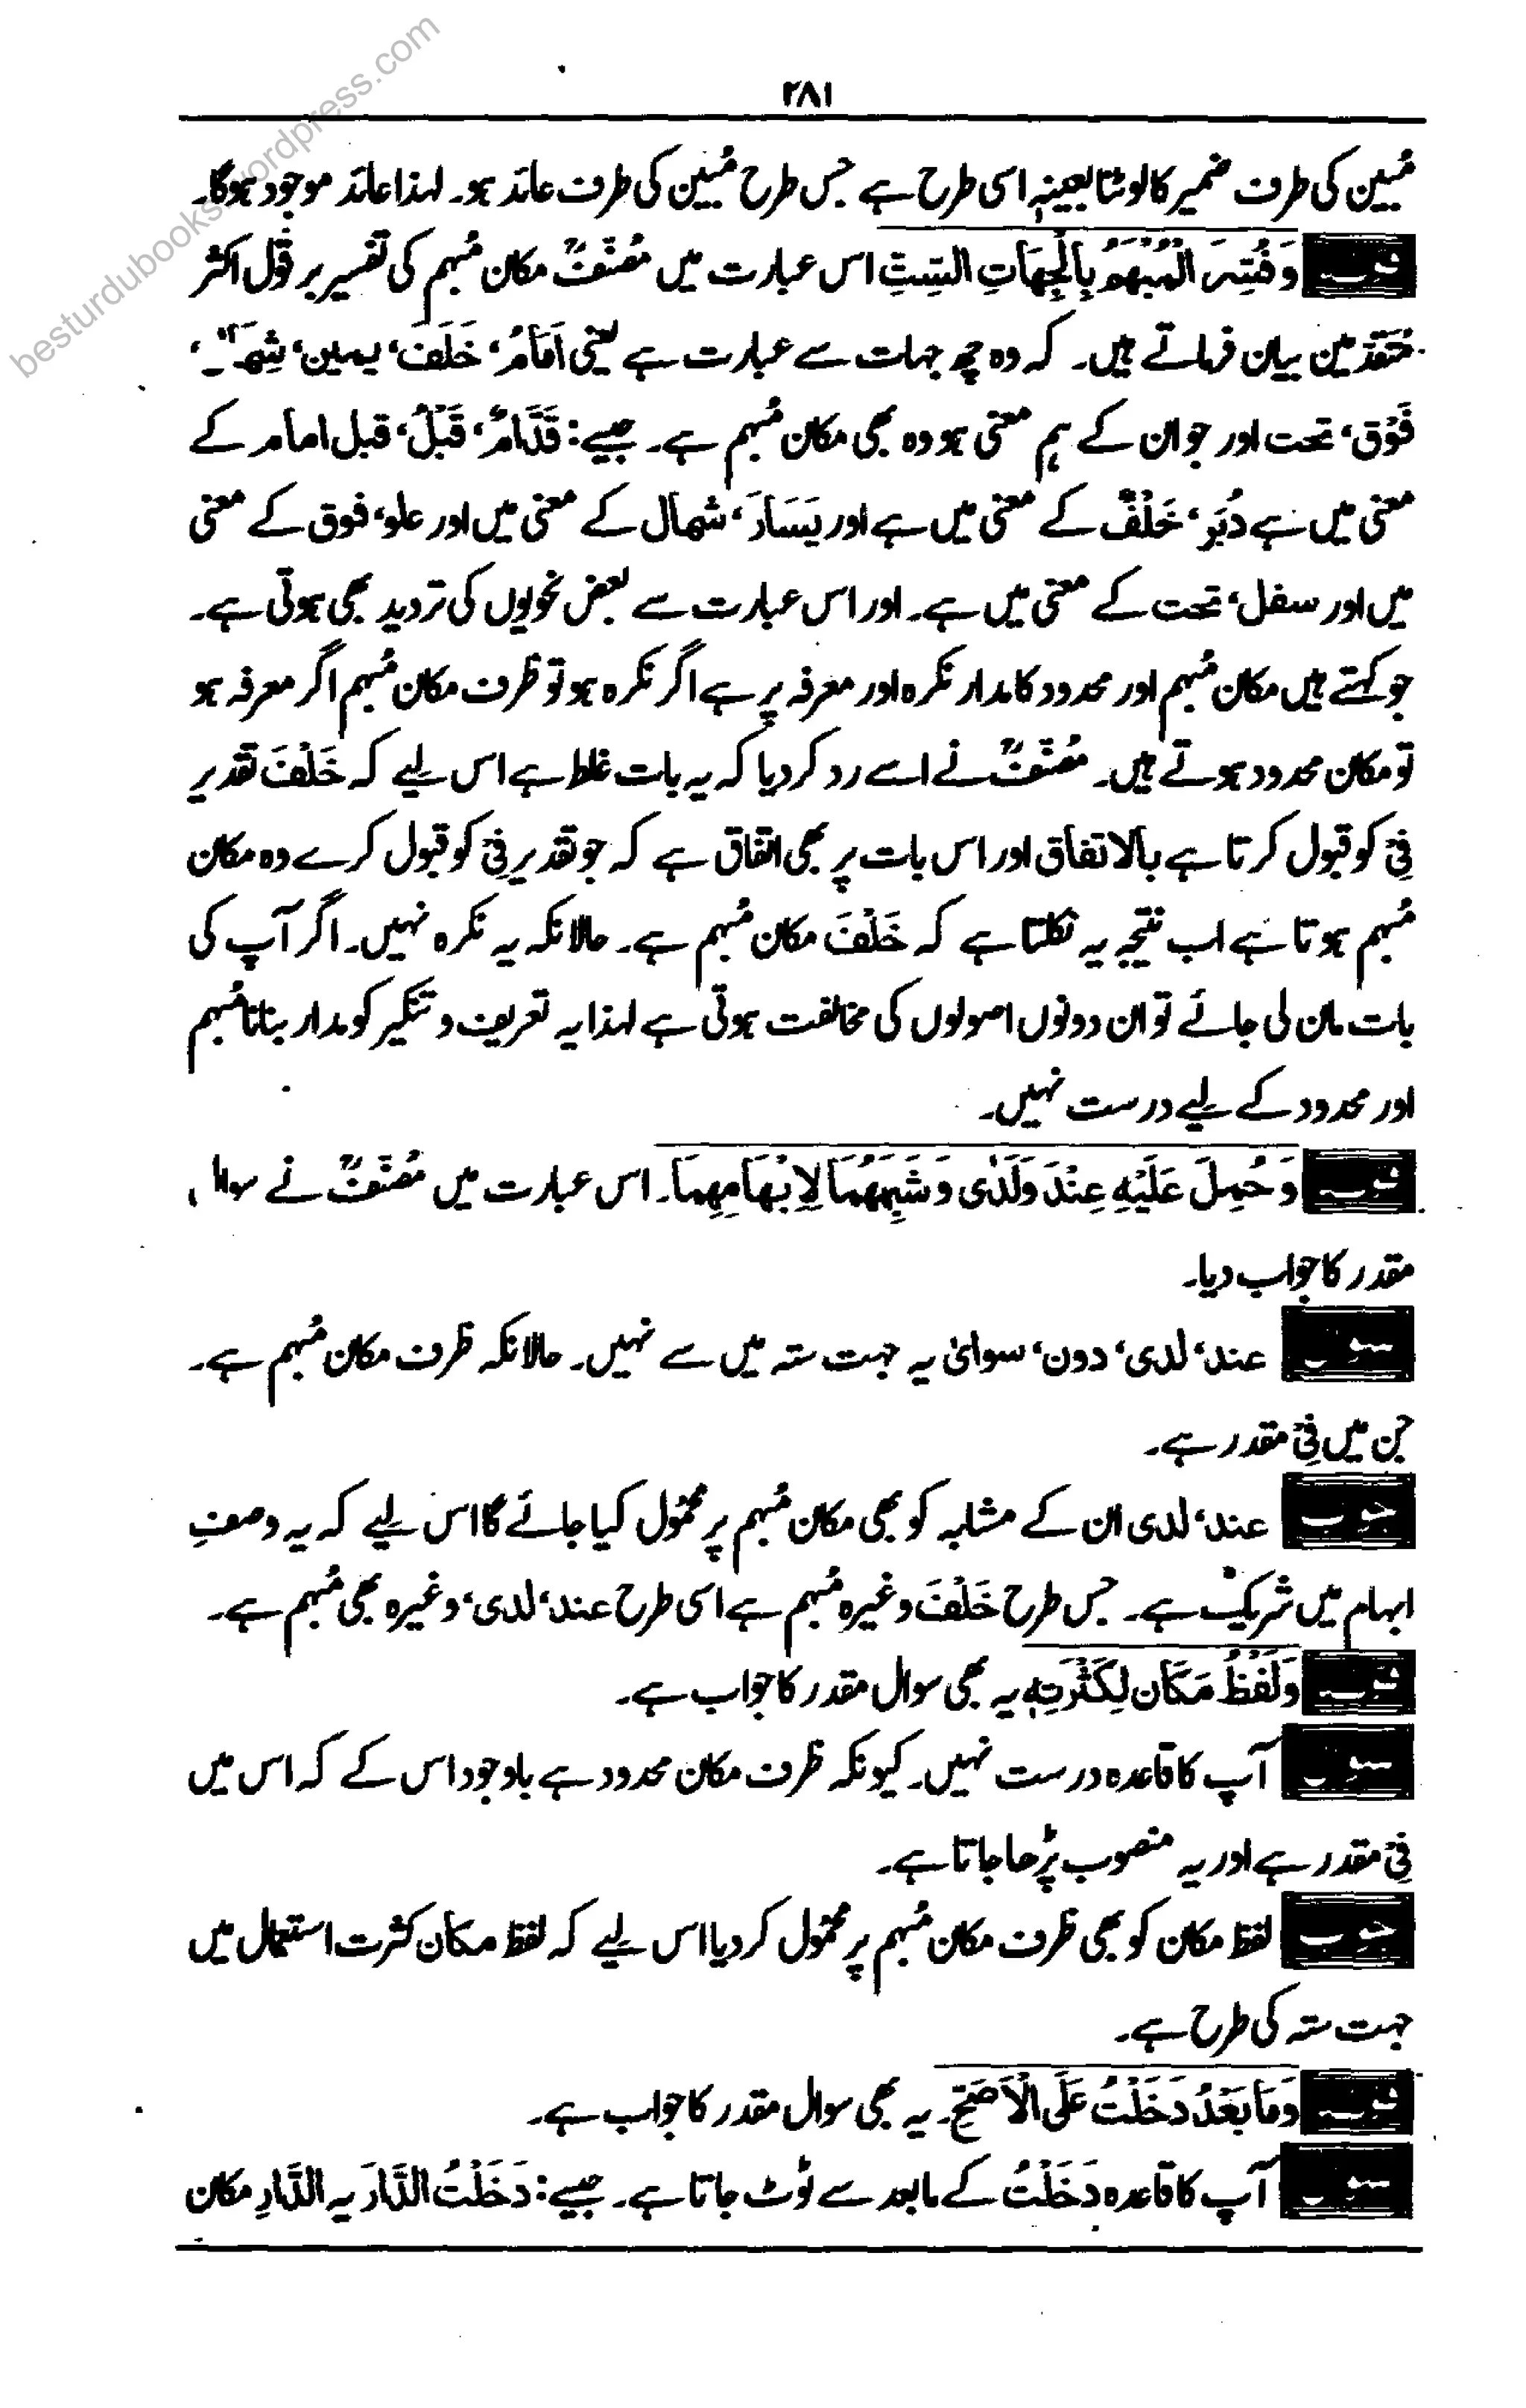 besturdubooks.wordpress.com
۲۸۱
مُبین کی طرف ضمیر کا لوٹنا بعینہٖ اسی طرح ہے جس طرح مُبین کی طرف عائد ہو۔ لہذا عائد موجود ہوگا۔
قولہ وَفُسِّرَ الْمُبْهَمُ بِالْجِهَاتِ السِّتِّ اس عبارت میں مُصَنّفؒ مکان مُبہم کی تفسیر بر قول اکثر
مُتقدمین بیان فرماتے ہیں۔ کہ وہ چھ جہات سے عبارت ہے یعنی اَمَامُ، خَلَفَ، یمین، شِمَال،
فَوْق، تحت اور جو ان کے ہم معنی ہو وہ بھی مکان مُبہم ہے۔ جیسے: قَدَّامُ، قَبْلُ، قبل امام کے
معنی میں ہے دُبَر، خَلْفٌ کے معنی میں ہے اور یَسَارَ، شمال کے معنی میں اور علو، فوق کے معنی
میں اور سفل، تحت کے معنی میں ہے۔ اور اس عبارت سے بعض نحویوں کی تردید بھی ہوتی ہے۔
جو کہتے ہیں مکان مُبہم اور محدود کا مدار نکرہ اور معرفہ پر ہے اگر نکرہ ہو تو ظرف مکان مُبہم اگر معرفہ ہو
تو مکان محدود ہوتے ہیں۔ مُصَنّفؒ نے اسے رد کر دیا کہ یہ بات غلط ہے اس لیے کہ خَلْفَ تقدیر
فِیْ کو قبول کرتا ہے بالاتفاق اور اس بات پر بھی اتفاق ہے کہ جو تقدیر فِیْ کو قبول کرے وہ مکان
مُبہم ہوتا ہے اب نتیجہ یہ نکلتا ہے کہ خَلْفَ مکان مُبہم ہے۔ حالانکہ یہ نکرہ نہیں۔ اگر آپ کی
بات مان لی جائے تو ان دونوں اصولوں کی مخالفت ہوتی ہے لہذا یہ تعریف و تنکیر کو مدار بنانا مُبہم
اور محدود کے لیے درست نہیں۔
قولہ وَحُمِلَ عَلَیْهِ عِنْدَ وَلَدٰی وَشِبْهُهُمَا لِاِبْهَامِهِمَا۔ اس عبارت میں مُصَنّفؒ نے سوال
مقدر کا جواب دیا۔
سوال عند، لدی، دون، سوائ یہ جہت ستہ میں سے نہیں۔ حالانکہ ظرف مکان مُبہم ہے۔
جن میں فِیْ مقدر ہے۔
جواب عند، لدی ان کے مشابہ کو بھی مکان مُبہم پر محمُول کیا جائے گا اس لیے کہ یہ وصفِ
ابہام میں شریک ہے۔ جس طرح خَلْفَ وغیرہ مُبہم ہے اسی طرح عند، لدی، وغیرہ بھی مُبہم ہے۔
قولہ وَلَفْظُ مَکَان لِکَثْرَتِهٖ یہ بھی سوال مقدر کا جواب ہے۔
سوال آپ کا قاعدہ درست نہیں۔ کیونکہ ظرف مکان محدود ہے باوجود اس کے کہ اس میں
فِیْ مقدر ہے اور یہ منصوب پڑھا جاتا ہے۔
جواب لفظ مکان کو بھی ظرف مکان مُبہم پر محمُول کر دیا اس لیے کہ لفظ مکان کثرت استعمال میں
جہت ستہ کی طرح ہے۔
قولہ وَمَا بَعْدُ دَخَلْتُ عَلَی الْاَصَحِّ۔ یہ بھی سوال مقدر کا جواب ہے۔
سوال آپ کا قاعدہ دَخَلْتُ کے مابعد سے ٹوٹ جاتا ہے۔ جیسے: دَخَلْتُ الدَّارَ یہ الدَّارِ مکان